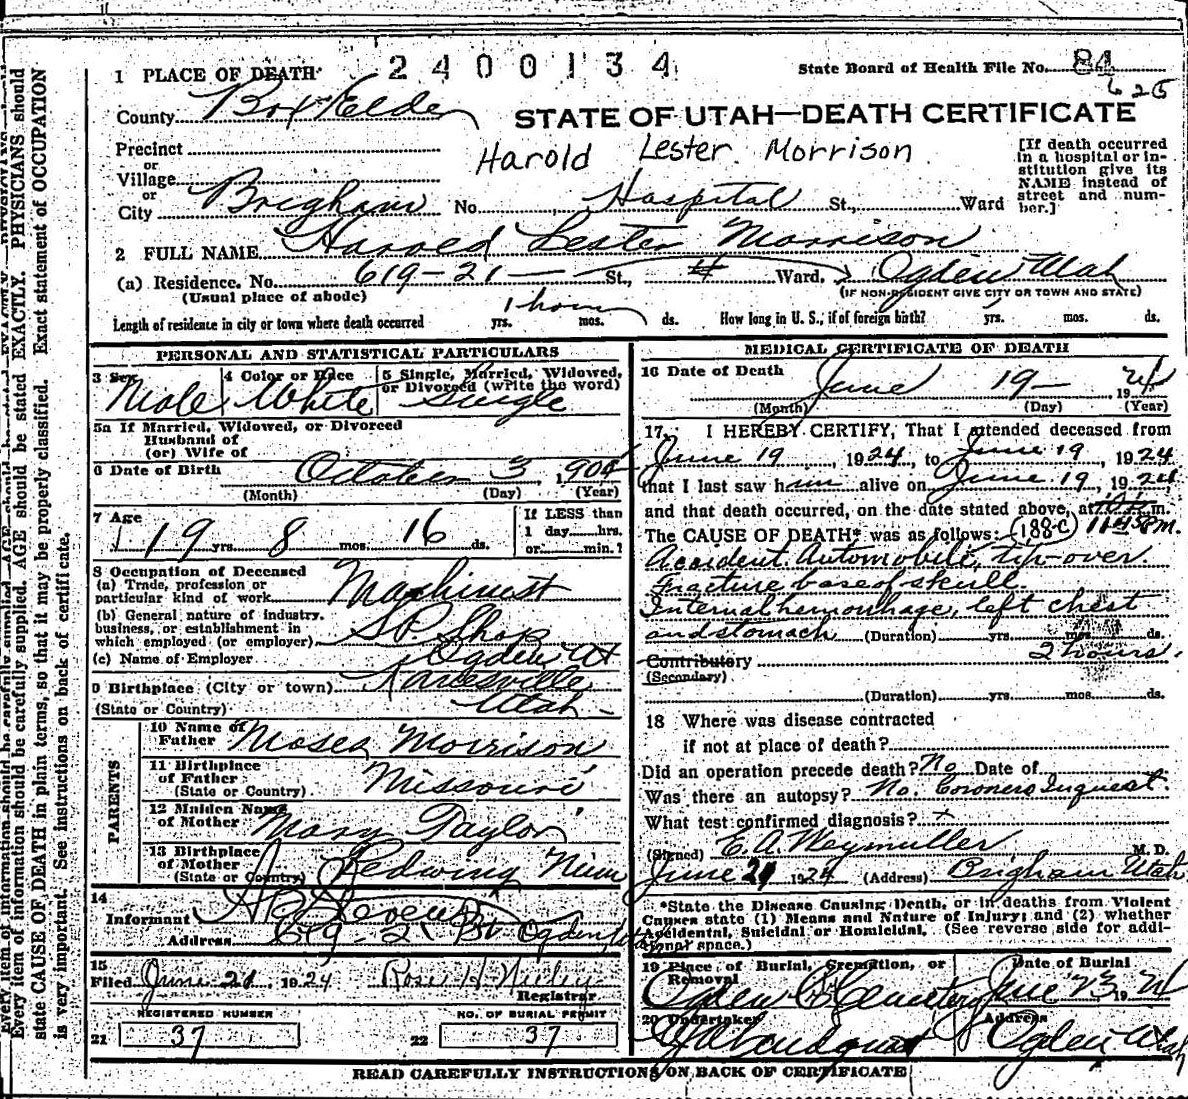 2400134
State Board of Health File No. 84
625
1 PLACE OF DEATH
County Box Elder
STATE OF UTAH—DEATH CERTIFICATE
Precinct
or
Village
or
City Brigham No. Hospital St., Ward
Harold Lester Morrison
[If death occurred
in a hospital or in-
stitution give its
NAME instead of
street and num-
ber.]
2 FULL NAME Harold Lester Morrison
(a) Residence. No. 619-21 St., 4 Ward, Ogden Utah
(Usual place of abode)
(IF NON-RESIDENT GIVE CITY OR TOWN AND STATE)
Length of residence in city or town where death occurred yrs. 1 hour mos. ds. How long in U. S., if of foreign birth? yrs. mos. ds.
PERSONAL AND STATISTICAL PARTICULARS
3 Sex
Male
4 Color or Race
White
5 Single, Married, Widowed,
or Divorced (write the word)
Single
5a If Married, Widowed, or Divorced
Husband of
(or) Wife of
6 Date of Birth October 3, 1904
(Month) (Day) (Year)
7 Age
19 yrs. 8 mos. 16 ds.
If LESS than
1 day hrs.
or min.?
8 Occupation of Deceased
(a) Trade, profession or
particular kind of work Machinist
(b) General nature of industry,
business, or establishment in
which employed (or employer) S.P. Shop
(c) Name of Employer Ogden Ut
9 Birthplace (City or town) Kanesville
(State or Country) Utah
PARENTS
10 Name of
Father Moses Morrison
11 Birthplace
of Father
(State or Country) Missouri
12 Maiden Name
of Mother Mary Taylor
13 Birthplace
of Mother
(State or Country) Redwing Minn
14
Informant
Address 619-21 St Ogden, Utah
15
Filed June 21, 1924 Rose H. Neeley
Registrar
REGISTERED NUMBER
21 37
NO. OF BURIAL PERMIT
22 37
MEDICAL CERTIFICATE OF DEATH
16 Date of Death June 19 1924
(Month) (Day) (Year)
17. I HEREBY CERTIFY, That I attended deceased from
June 19, 1924, to June 19, 1924
that I last saw him alive on June 19, 1924,
and that death occurred, on the date stated above, at m.
The CAUSE OF DEATH* was as follows: (188-c) 11:45 P.M.
Accident. Automobile, tip-over.
Fracture base of skull.
Internal hemorrhage, left chest
and stomach (Duration) yrs. mos. ds.
2 hours.
Contributory
(Secondary)
(Duration) yrs. mos. ds.
18 Where was disease contracted
if not at place of death?
Did an operation precede death? No Date of
Was there an autopsy? No. Coroners Inquest.
What test confirmed diagnosis? x
(Signed) E. A. Weymuller M. D.
June 21 1924 (Address) Brigham Utah
*State the Disease Causing Death, or in deaths from Violent
Causes state (1) Means and Nature of Injury; and (2) whether
Accidental, Suicidal or Homicidal. (See reverse side for addi-
tional space.)
19 Place of Burial, Cremation, or
Removal
Ogden City Cemetery
Date of Burial
June 23 1924
20 Undertaker
Address
Ogden Utah
READ CAREFULLY INSTRUCTIONS ON BACK OF CERTIFICATE
Every item of information should be carefully supplied. AGE should be stated EXACTLY. PHYSICIANS should
state CAUSE OF DEATH in plain terms, so that it may be properly classified. Exact statement of OCCUPATION
is very important. See instructions on back of certificate.